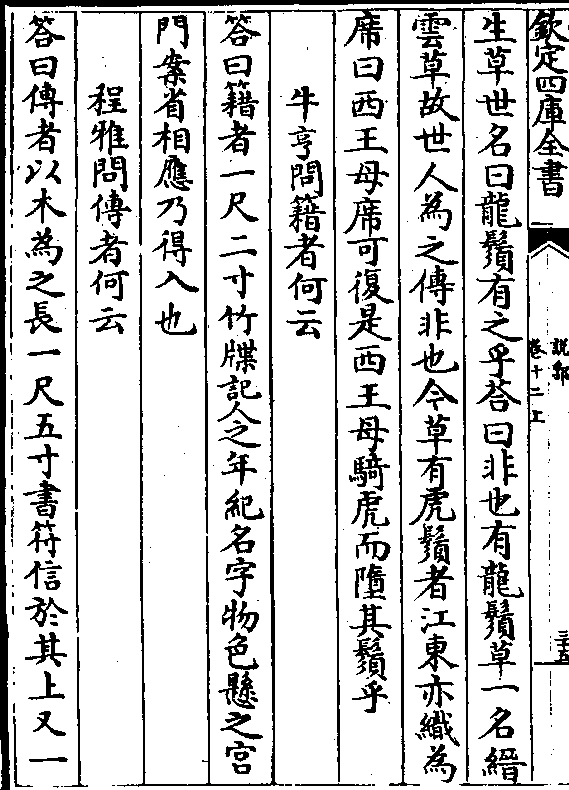 欽定四庫全書
說郛
卷十二上
三十五
生草世名曰龍鬚有之乎荅曰非也有龍鬚草一名縉
雲草故世人為之傳非也今草有虎鬚者江東亦織為
席曰西王母席可復是西王母騎虎而墮其鬚乎
牛亨問籍者何云
荅曰籍者一尺二寸竹牒記人之年紀名字物色懸之宫
門案省相應乃得入也
程雅問傳者何云
荅曰傳者以木為之長一尺五寸書符信於其上又一